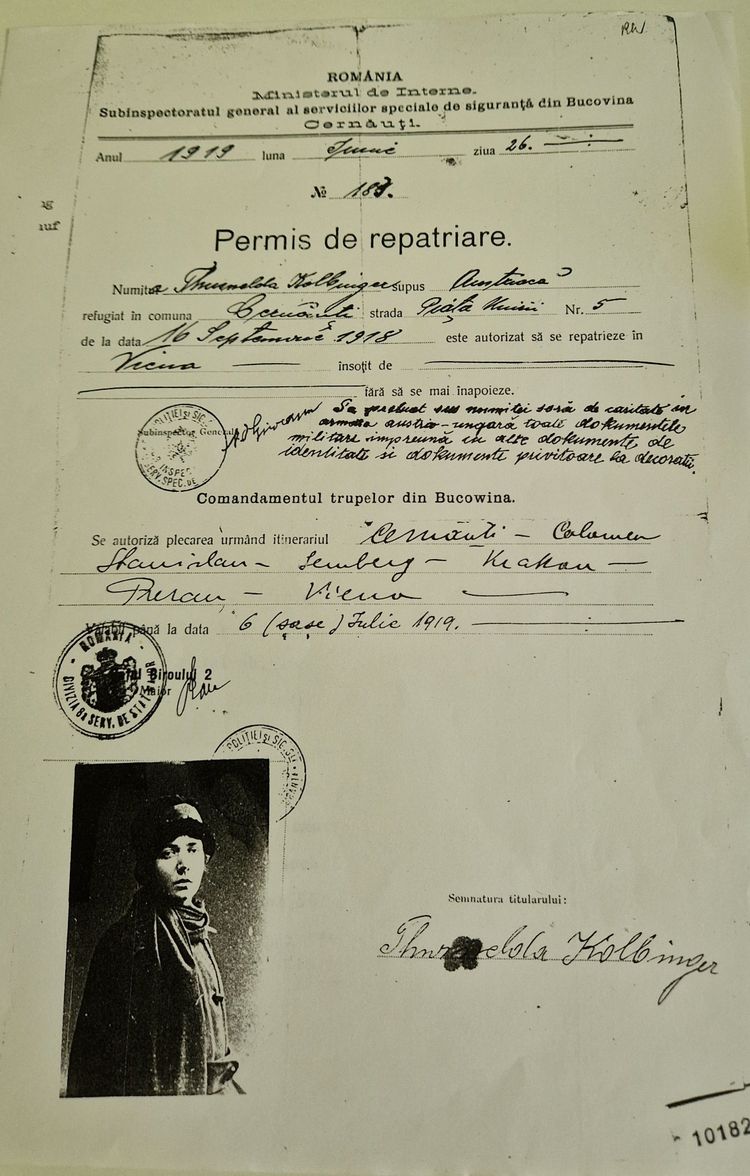 RW
ROMÂNIA
Ministerul de Interne.
Subinspectoratul general al serviciilor speciale de siguranță din Bucovina
Cernăuți.
Anul 1919 luna Iunie ziua 26.
№ 183.
Permis de repatriare.
Numita Thusnelda Kolbinger supus Austriacă
refugiat în comuna Cernăuti strada Piăta Unirii Nr. 5
de la data 16 Septemvrie 1918 este autorizat să se repatrieze în
Viena însoțit de
fără să se mai înapoieze.
Subinspector General
S'a prestat sus numitei soră de caritate in
armata austro-ungară toate dokumentele
militare impreună cu alte dokumente de
identitate si dokumente privitoare la decoratii.
POLIȚIEI ȘI SIG.
INSPEC
SERV. SPEC. DE
Comandamentul trupelor din Bucowina.
Se autoriză plecarea urmând itinerariul Cernăuti - Colomea
Stanislau - Lemberg - Krakau -
Prerau - Viena
Valabil până la data 6 (șase) Iulie 1919.
ROMÂNIA
DIVIZIA 8a SERV. DE STAT MAJOR
Biroului 2
Maior
POLIȚIEI ȘI SIG.
Semnatura titularului:
Thusnelda Kolbinger
10182